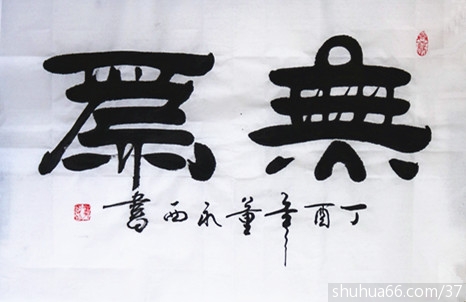 無為
丁酉年董永西書
shuhua66.com/37